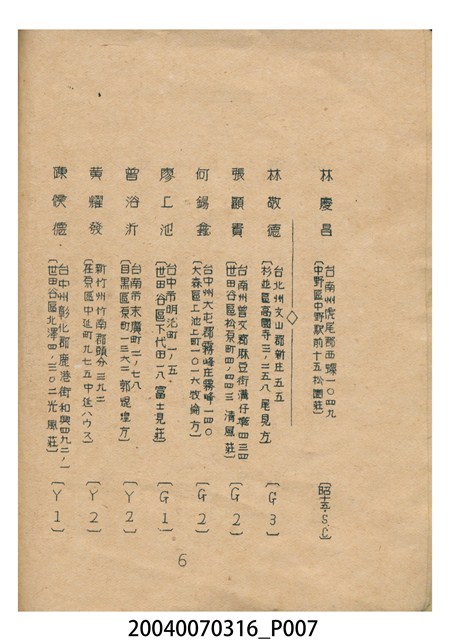 林慶昌 台南州虎尾郡西螺一〇四九
中野區中野駅前十五松園莊 (昭十五.S.C)
林敬德 台北州文山郡新庄五五
杉並區高圓寺三ノ二五八尾見方 (G3)
張顯貴 台南州曾文郡麻豆街溝仔墘四三四
世田谷區松原町四ノ四四三清風莊 (G2)
何錫鑫 台中州大屯郡霧峰庄霧峰一四〇
大森區上池上町一〇一六牧倫方 (G2)
廖上池 台中市明治町一ノ五
世田谷區下代田一八富士見莊 (G1)
曾浴沂 台南市末廣町二ノ七八
目黑區原町一三六二郭焜埕方 (Y2)
黃耀發 新竹州竹南郡頭分三九二
荏原區中延町九七五中延ハウス (Y2)
陳俟德 台中州彰化郡鹿港街和興四九二ノ一
世田谷區北澤四ノ三〇二光風莊 (Y1)
6
20040070316_P007